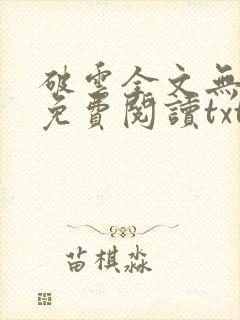 破雲全文無
免費閱讀txt
苗棋淼